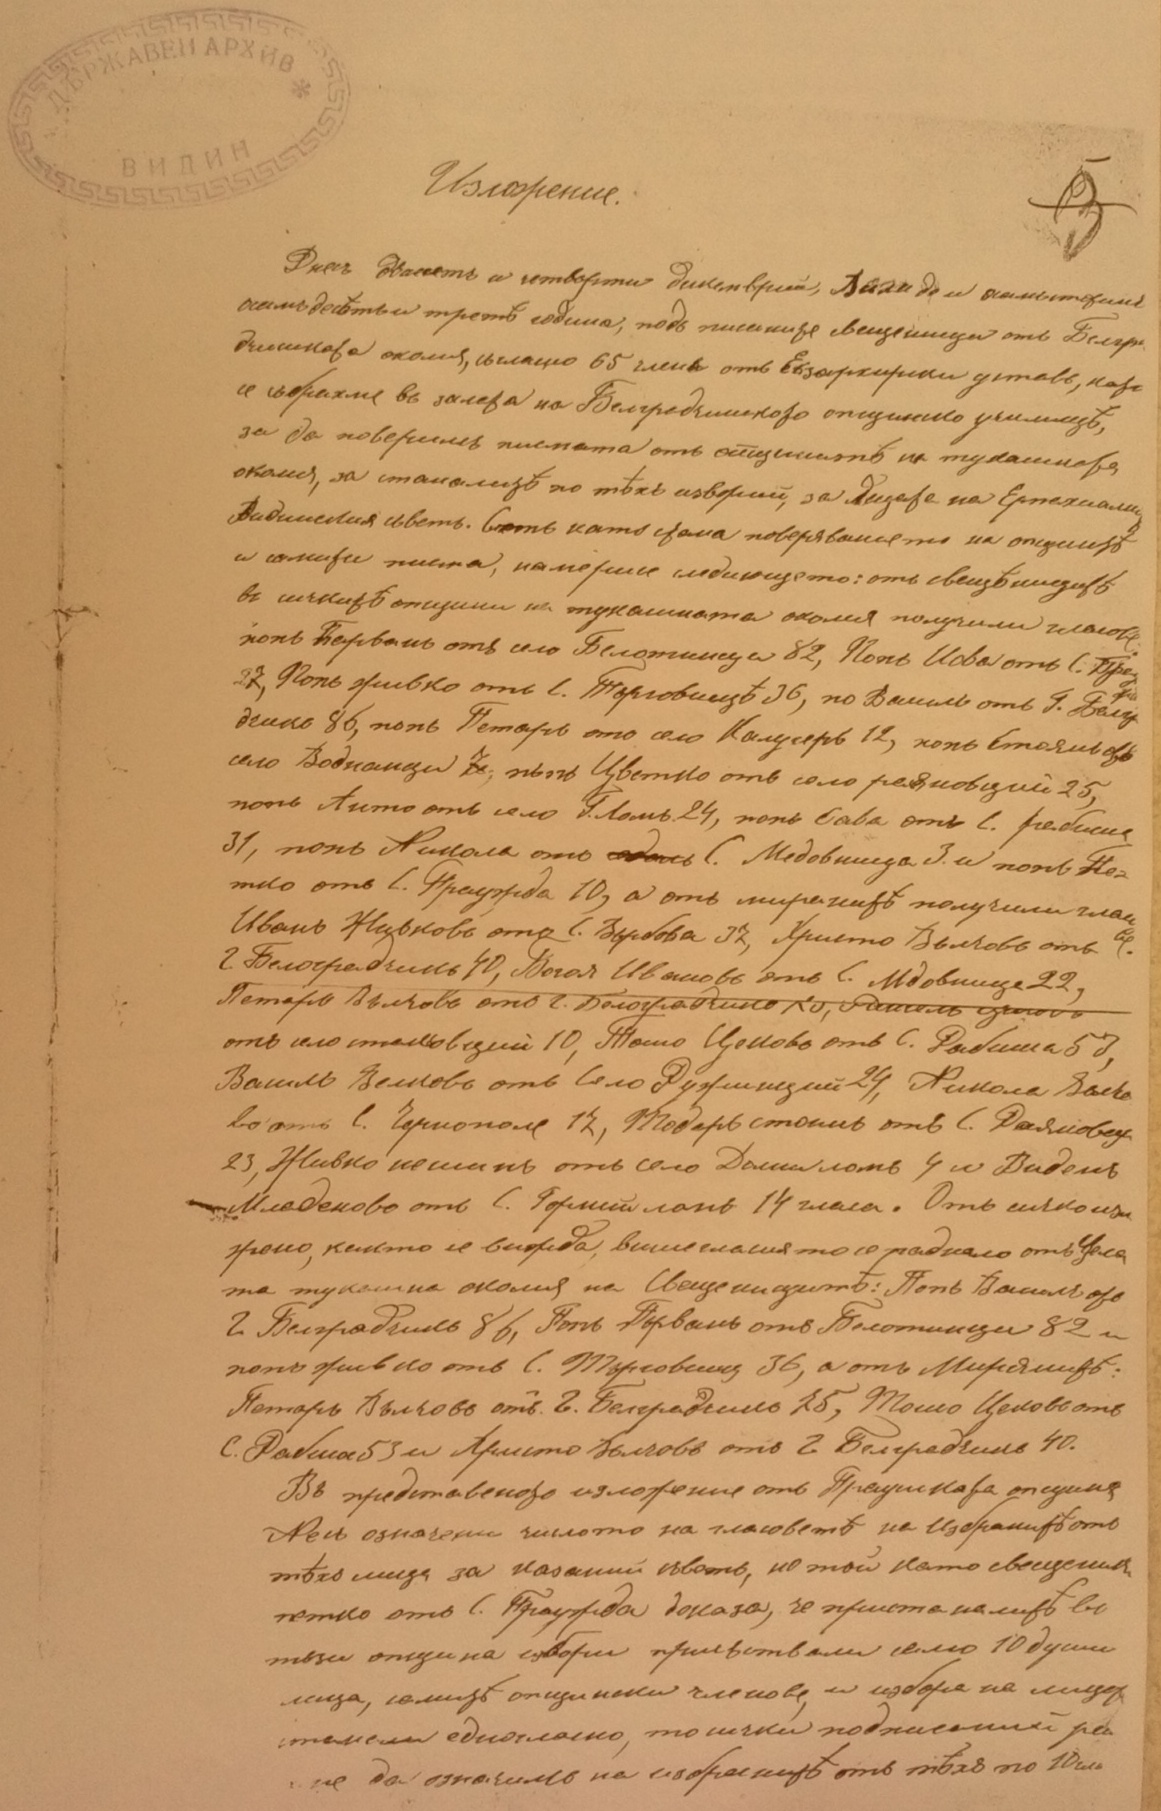 ДЪРЖАВЕН АРХИВ
ВИДИН
Изложение.
5
Днесъ двадесетъ и четвърти декемврий, хиляда и осмьстотинъ
осмьдесѣтьи третѣ година, подъ писаните свещеници отъ Белгра-
дчишката околия, съгласно 65 члена отъ Екзархийски уставъ, като
се събрахме въ залата на Белградчишкото општинско училищѣ,
за да поверимъ писмата отъ општинитѣ на тукашната
околия, за станалитѣ по тѣхъ избории, за лицата на Епархиални
Видинския съветъ. Сѣтъ като стана поверяванието на општитѣ
и самите писма, намерихме следующето: отъ свещѣницитѣ
въ сичкитѣ општини на тукашната околия получили гласове:
попъ Първанъ отъ село Белотинци 82, Попъ Иова отъ С.
27, Попъ живко отъ С. Търговищѣ 36, по Василъ отъ Г. Белгра
дчикъ 86, попъ Петаръ отъ село Калугеръ 12, попъ Стоянъ отъ
село Воднянци 7, попъ Цветко отъ село раяновций 25,
попъ Анто отъ село Г. Ломъ 24, попъ Сава отъ С. рабиша
31, попъ Никола отъ С. Медовница 3. и попъ Пе-
тко отъ С. Праужда 10, а отъ миряните получили гласове
Иванъ Живковъ отъ С. Върбова 37, Христо Вълчовъ отъ
Г. Белоградчикъ 40, Богоя Ивановъ отъ С. Мѣдовница 22,
Петаръ Вълчовъ отъ г. Белоградчикъ 75,
отъ село стакьовций 10, Тошо Цековъ отъ С. Рабиша 53,
Василъ Велковъ отъ Село Ружинций 24, Никола Вълчо
въ отъ С. Чернополе 17, Тодоръ стоинъ отъ С. Раяновци
23, Живко нешинъ отъ село Долни ломъ 4 и Виденъ
Младеновъ отъ С. Горний ломъ 14 гласа. Отъ сичко изло
жено, както се вижда, вишегласието се паднало отъ цела
та тукашна околия на Свещеницитѣ: Попъ Василъ отъ
Г. Белградчикъ 86, Попъ Първанъ отъ Белотинци 82 и
попъ живко отъ С. Търговищ 36, а отъ Мирянитѣ:
Петаръ Вълчовъ отъ Г. Белградчикъ 75, Тошо Цековъ отъ
С. Рабиша 53 и Христо Вълчовъ отъ Г. Белградчикъ 40.
Въ представеното изложение отъ Праушката општина
Несъ означени числото на гласоветѣ на избранитѣ отъ
тѣхъ лица за казаний съветъ, но той като свещеникъ
петко отъ С. Праужда доказа, че при станалитѣ въ
тъзи општина избори присъствали само 10 души
лица, самитѣ општински членове, и избора на лицата
станали едногласно, то сички подписаний ре
не да означимъ на избранитѣ отъ тѣхъ по 10